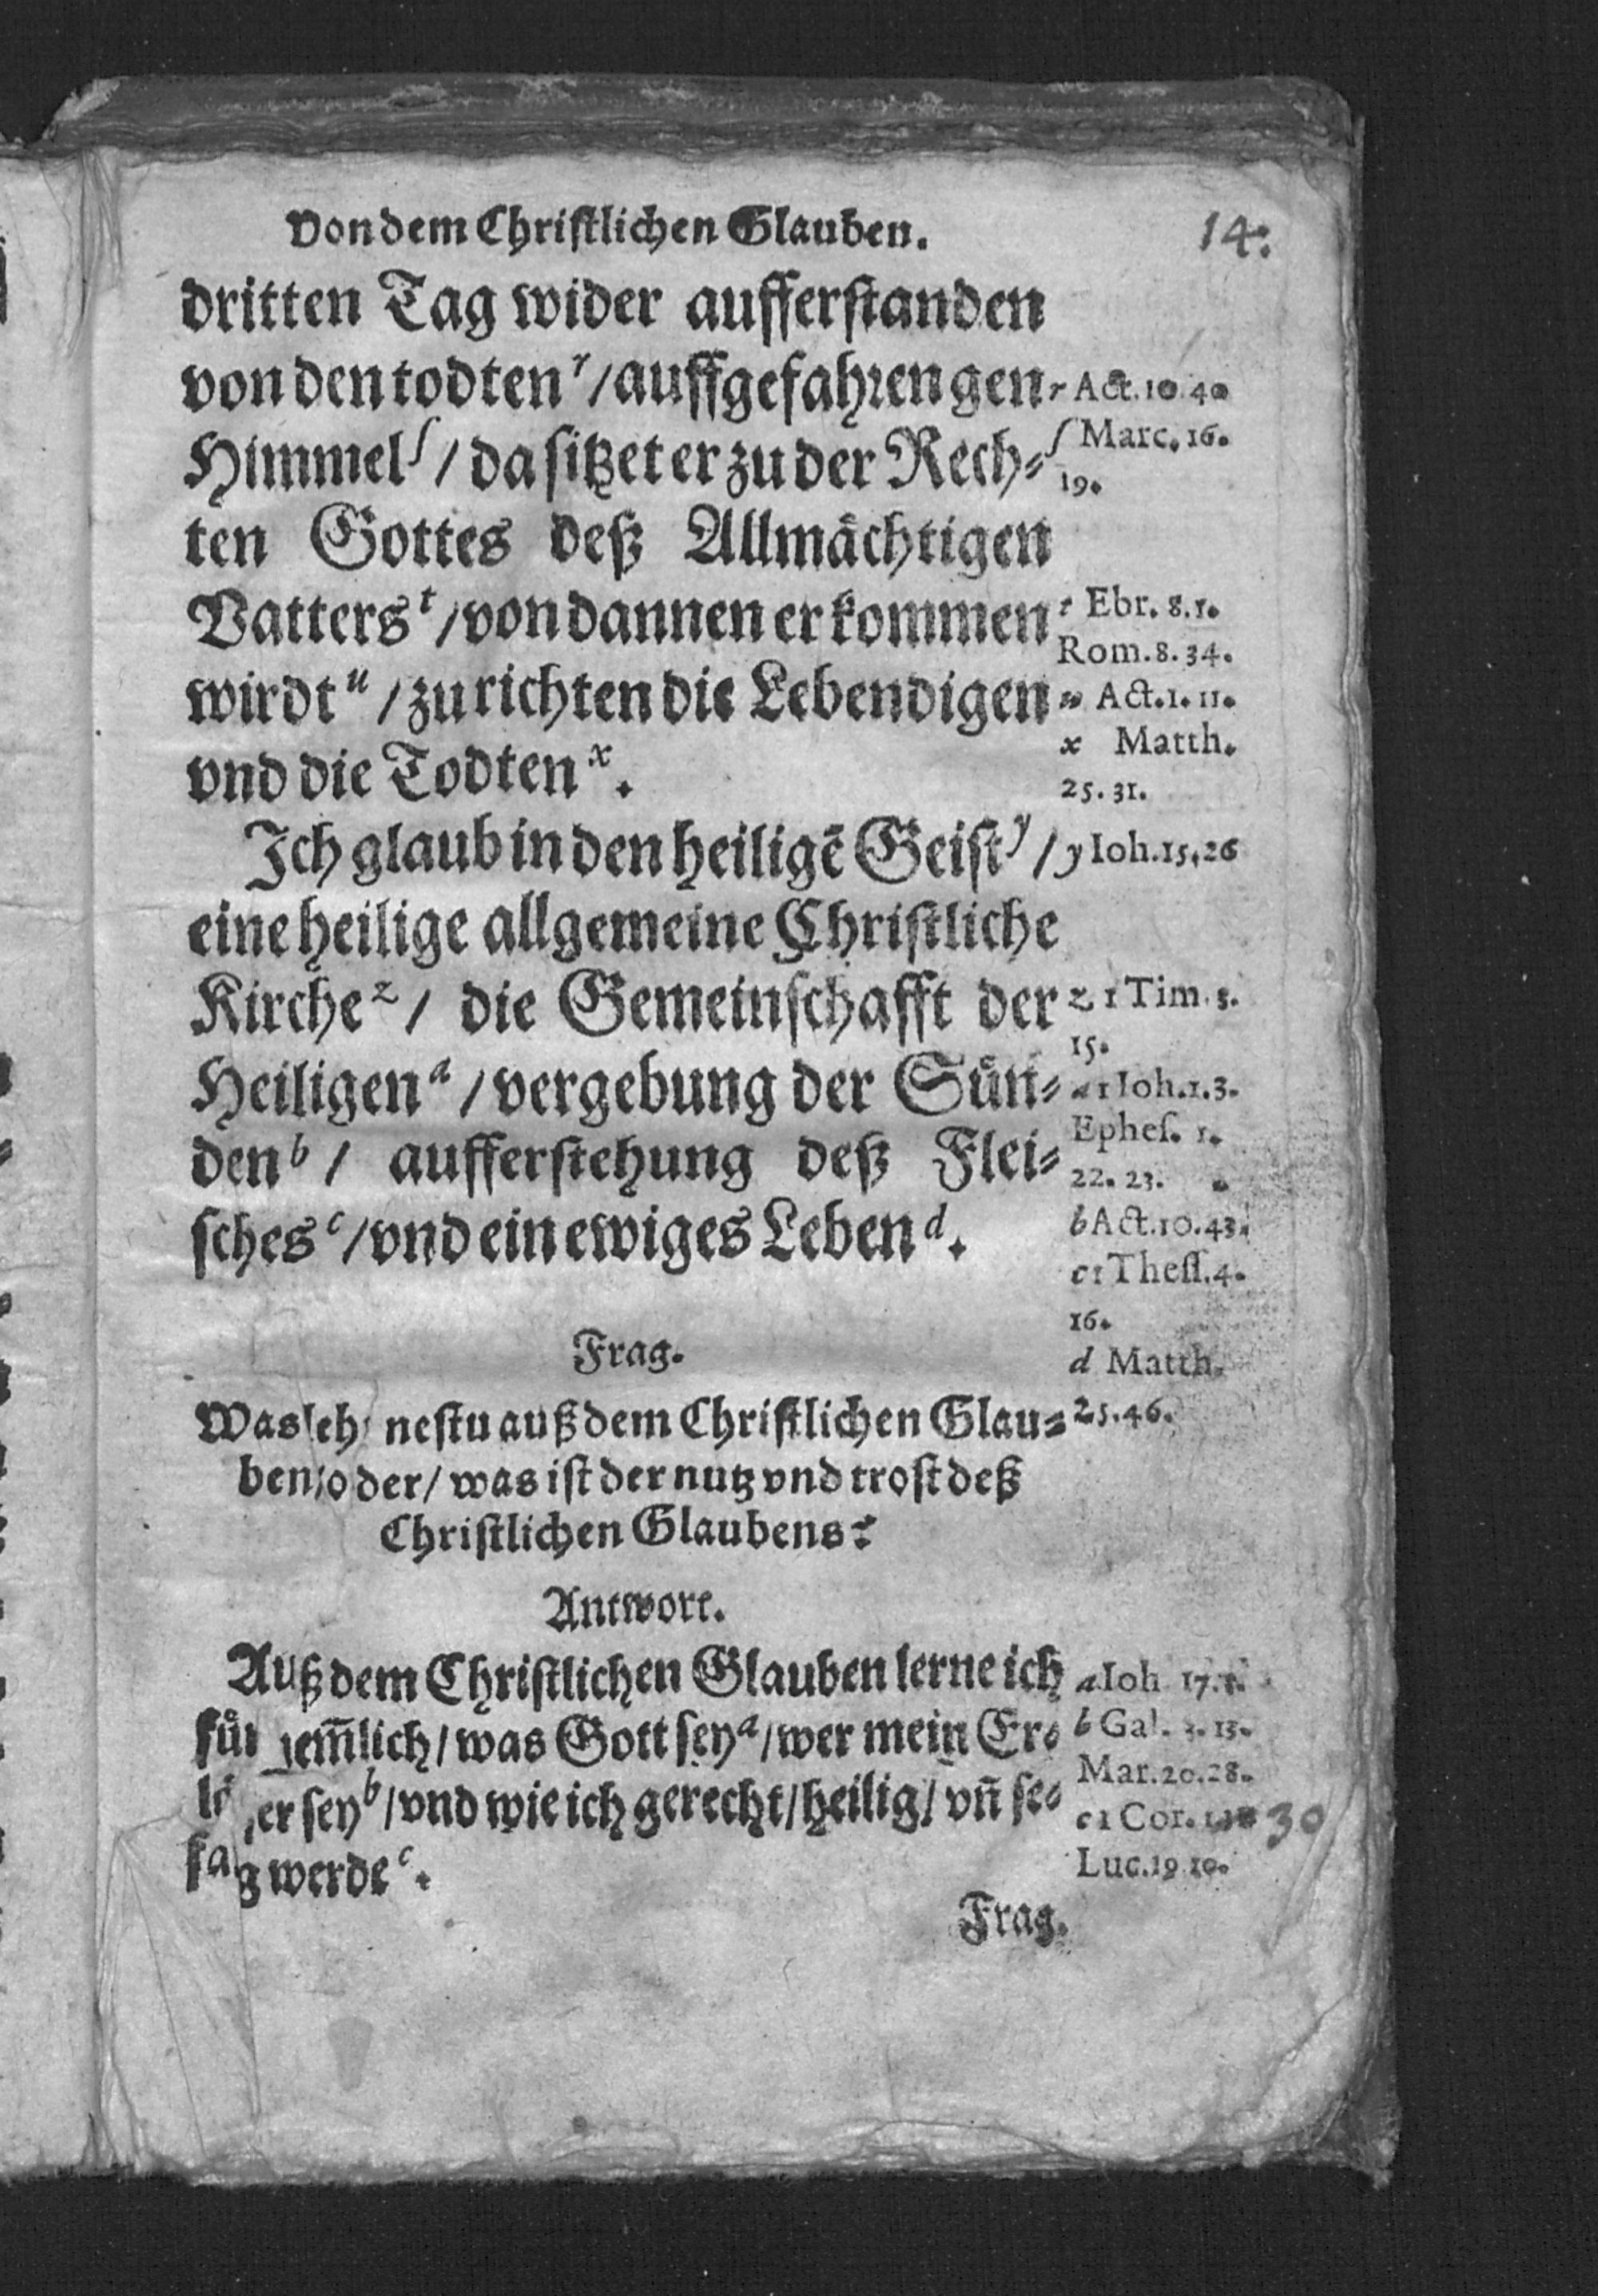 Von dem Christlichen Glauben.
14.
dritten Tag wider aufferstanden
von den todten r / auffgefahren gen
Himmel ſ / da sitzet er zu der Rech⸗
ten Gottes deß Allmächtigen
Vatters t / von dannen er kommen
wirdt u / zu richten die Lebendigen
vnd die Todten x.
Ich glaub in den heiligē Geist y /
eine heilige allgemeine Christliche
Kirche z / die Gemeinschafft der
Heiligen a / vergebung der Sün⸗
den b / aufferstehung deß Flei⸗
sches c / vnd ein ewiges Leben d.
r Act. 10. 40
ſ Marc. 16.
19.
t Ebr. 8. 1.
Rom. 8. 34.
u Act. 1. 11.
x Matth.
25. 31.
y Ioh. 15. 26
z 1 Tim. 3.
15.
a 1 Ioh. 1. 3.
Ephes. 1.
22. 23.
b Act. 10. 43.
c 1 Thess. 4.
16.
d Matth.
25. 46.
Frag.
Was leh nestu auß dem Christlichen Glau⸗
ben / oder / was ist der nutz vnd trost deß
Christlichen Glaubens?
Antwort.
Auß dem Christlichen Glauben lerne ich
für em̃lich / was Gott sey a / wer mein Er⸗
lö er sey b / vnd wie ich gerecht / heilig / vn̄ se⸗
g werde c.
a Ioh 17. 
b Gal. 3. 13.
Mar. 20. 28.
c 1 Cor. 1. 30
Luc. 19 10.
Frag.